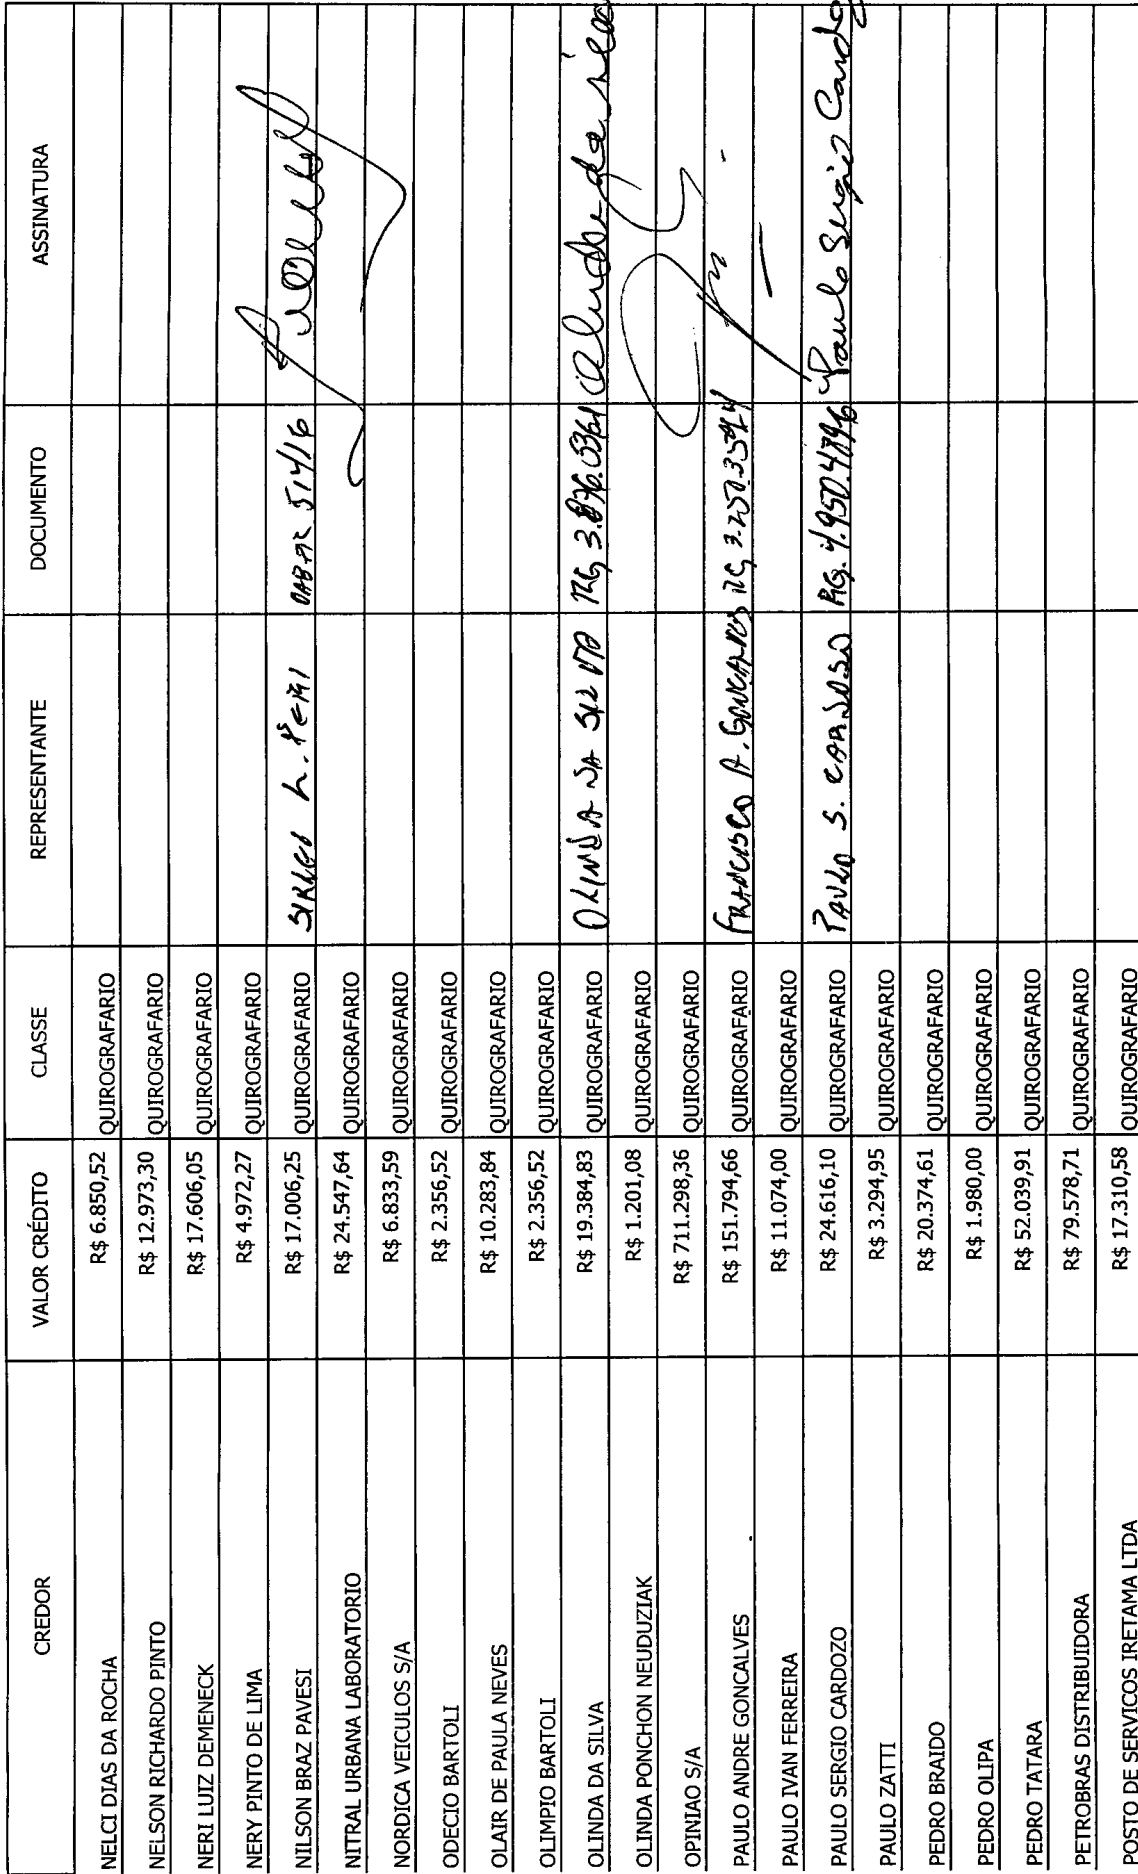 CREDOR VALOR CRÉDITO CLASSE REPRESENTANTE DOCUMENTO ASSINATURA
NELCI DIAS DA ROCHA R$ 6.850,52 QUIROGRAFARIO
NELSON RICHARDO PINTO R$ 12.973,30 QUIROGRAFARIO
NERI LUIZ DEMENECK R$ 17.606,05 QUIROGRAFARIO
NERY PINTO DE LIMA R$ 4.972,27 QUIROGRAFARIO
NILSON BRAZ PAVESI R$ 17.006,25 QUIROGRAFARIO
NITRAL URBANA LABORATORIO R$ 24.547,64 QUIROGRAFARIO
NORDICA VEICULOS S/A R$ 6.833,59 QUIROGRAFARIO
ODECIO BARTOLI R$ 2.356,52 QUIROGRAFARIO
OLAIR DE PAULA NEVES R$ 10.283,84 QUIROGRAFARIO
OLIMPIO BARTOLI R$ 2.356,52 QUIROGRAFARIO
OLINDA DA SILVA R$ 19.384,83 QUIROGRAFARIO OLINDA DA SILVA RG
OLINDA PONCHON NEUDUZIAK R$ 1.201,08 QUIROGRAFARIO
OPINIAO S/A R$ 711.298,36 QUIROGRAFARIO
PAULO ANDRE GONCALVES R$ 151.794,66 QUIROGRAFARIO FRANCISCO A. GONCALVES RG
PAULO IVAN FERREIRA R$ 11.074,00 QUIROGRAFARIO
PAULO SERGIO CARDOZO R$ 24.616,10 QUIROGRAFARIO PAULO S. CARDOSO RG. Paulo Sergio
PAULO ZATTI R$ 3.294,95 QUIROGRAFARIO
PEDRO BRAIDO R$ 20.374,61 QUIROGRAFARIO
PEDRO OLIPA R$ 1.980,00 QUIROGRAFARIO
PEDRO TATARA R$ 52.039,91 QUIROGRAFARIO
PETROBRAS DISTRIBUIDORA R$ 79.578,71 QUIROGRAFARIO
POSTO DE SERVICOS IRETAMA LTDA R$ 17.310,58 QUIROGRAFARIO